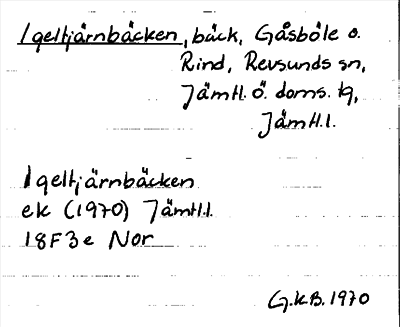 Igeltjärnbäcken, bäck, Gåsböle o.
Rind, Revsunds sn,
Jämtl. ö. doms. tg,
Jämtl.l.
Igeltjärnbäcken
ek (1970) Jämtl.l.
18F3e Nor
G.K.B. 1970